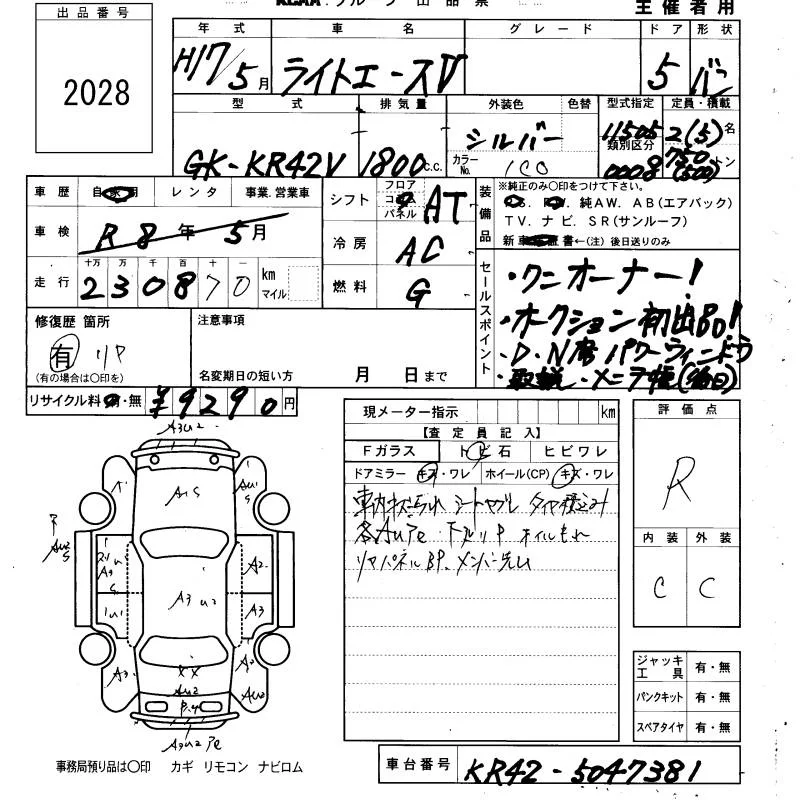 出品番号
2028
主催者用
年式 車名 グレード ドア 形状
H17/5月 ライトエースV 5 バン
型式 排気量 外装色 色替 型式指定 定員・積載
GK-KR42V 1800c.c. シルバー カラーNo. 1C0 11505 2(5)名
類別区分 0008 750(500)トン
車歴 自家用 レンタ 事業.営業車
車検 R8年5月
走行 十万 万 千 百 十 一
230870 km マイル
シフト フロア コラム パネル AT
冷房 AC
燃料 G
装備品
※純正のみ○印をつけて下さい。
PS. PW. 純AW. AB(エアバック)
TV. ナビ. SR(サンルーフ)
新車保証書←(注) 後日送りのみ
修復歴 箇所
有 リア
(有の場合は○印を)
注意事項
名変期日の短い方 月 日まで
セールスポイント
・ワンオーナー!
・オークション初出品!
・D・N席パワーウィンドウ
・取説・メンテ機(後日)
リサイクル料 有・無 ¥9290円
現メーター指示 km
【査定員記入】
Fガラス トビ石 ヒビワレ
ドアミラー キズ・ワレ ホイール(CP) キズ・ワレ
車内キズ汚れ シートヤブレ タイヤ積込み
各AUPe 下廻りP オイルもれ
リアパネルBP、メンバー凹ム
評価点
R
内装 外装
C C
A3U2
A1S
AU1
S
A1
R
AU2
S
A2
A3
A3U2
1U1
A3
XX
AU2
P.U
A2
AU2
A3U2Pe
ジャッキ工具 有・無
パンクキット 有・無
スペアタイヤ 有・無
事務局預り品は○印 カギ リモコン ナビロム
車台番号 KR42-5047381